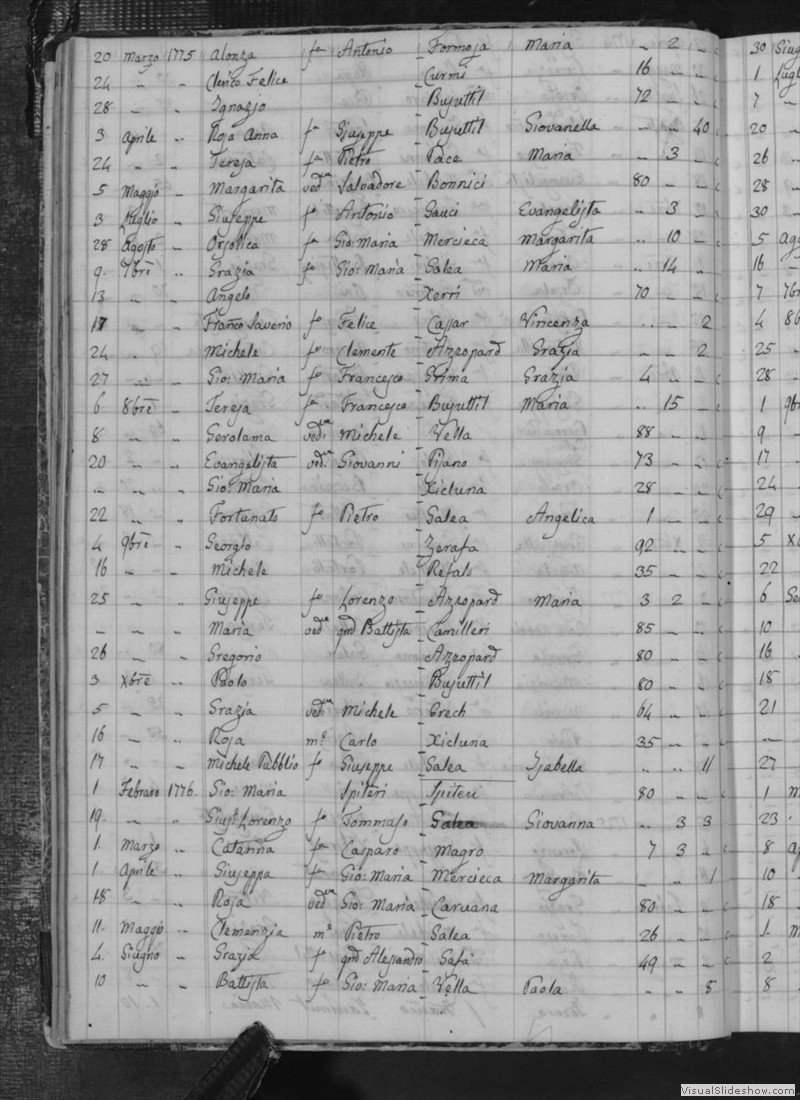 20 Marzo 1775 Alonza fa Antonio Formosa Maria – 2 – 30 Giug
24 – – Clerico Felice Curmi 16 – – 1 Lugl
28 – – Ignazio Busuttil 72 – – 7 –
3 Aprile – Rosa Anna fa Giuseppe Busuttil Giovanella – – 40 20 –
24 – – Teresa fa Pietro Pace Maria – 3 – 26 –
5 Maggio – Margarita veda Salvadore Bonnici 80 – – 28 –
3 Luglio – Giuseppe fo Antonio Gauci Evangelista – 3 – 30 –
28 Agosto – Orsolica fa Gio: Maria Mercieca Margarita .. 10 – 5 Ago
9 7bre .. Grazia fa Gio: Maria Galea Maria .. 14 .. 16 –
13 – – Angelo Xerri 70 – – 7 7br
17 – – Franco Saverio fo Felice Cassar Vincenza .. – 2 4 8b
24 . – Michele fo Clemente Azzopard Grazia – – 2 25 –
27 – – Gio: Maria fo Francesco Grima Grazia 4 – – 28 –
6 8bre .. Teresa fa Francesco Busuttil Maria .. 15 – 1 9br
8 – – Gerolama veda Michele Vella 88 – – 9 –
20 – – Evangelista veda Giovanni Pisano 73 – – 17 –
– – – Gio: Maria Xicluna 28 – – 24 –
22 – – Fortunato fo Pietro Galea Angelica 1 – – 29 –
4 9bre – Georgio Zerafa 92 – – 5 Xb
16 – – Michele Refalo 35 – – 22 –
25 – .. Giuseppe fo Lorenzo Azzopard Maria 3 2 – 6 Ge
– – – Maria veda qm Battista Camilleri 85 – – 10 –
26 – .. Gregorio Azzopard 80 – – 16 –
3 Xbre .. Paolo Busuttil 80 – – 18 –
5 – – Grazia veda Michele Grech 64 – – 21 –
16 – – Rosa me Carlo Xicluna 35 – – –
17 – .. Michele Pubblio fo Giuseppe Galea Isabella .. .. 11 27 –
1 Febraro 1776. Gio: Maria Spiteri Spiteri 80 – – 1 M
19. – .. Giuse Lorenzo fo Tommaso Galea Giovanna .. 3 3 23 .
1. Marzo – Catarina fa Casparo Magro 7 3 .. 8 Ap
1 Aprile – Giuseppa fa Gio: Maria Mercieca Margarita – .. 1 10 –
18 – – Rosa veda Gio: Maria Caruana 80 – – 18 –
11. Maggio .. Clemenzia me Pietro Galea 26 – – 1. M
4. Giugno – Grazia fa qm Alessandro Safà 49 – – 2 –
10 – – Battista fo Gio: Maria Vella Paola – – 8 8 –
VisualSlideshow.com